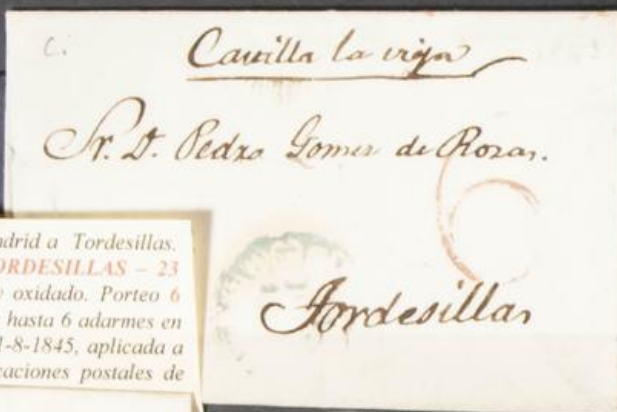 C.
Castilla la vieja
Sr. D. Pedro Gomez de Rozas.
6
Tordesillas
adrid a Tordesillas.
ORDESILLAS – 23
oxidado. Porteo 6
hasta 6 adarmes en
1-8-1845, aplicada a
caciones postales de